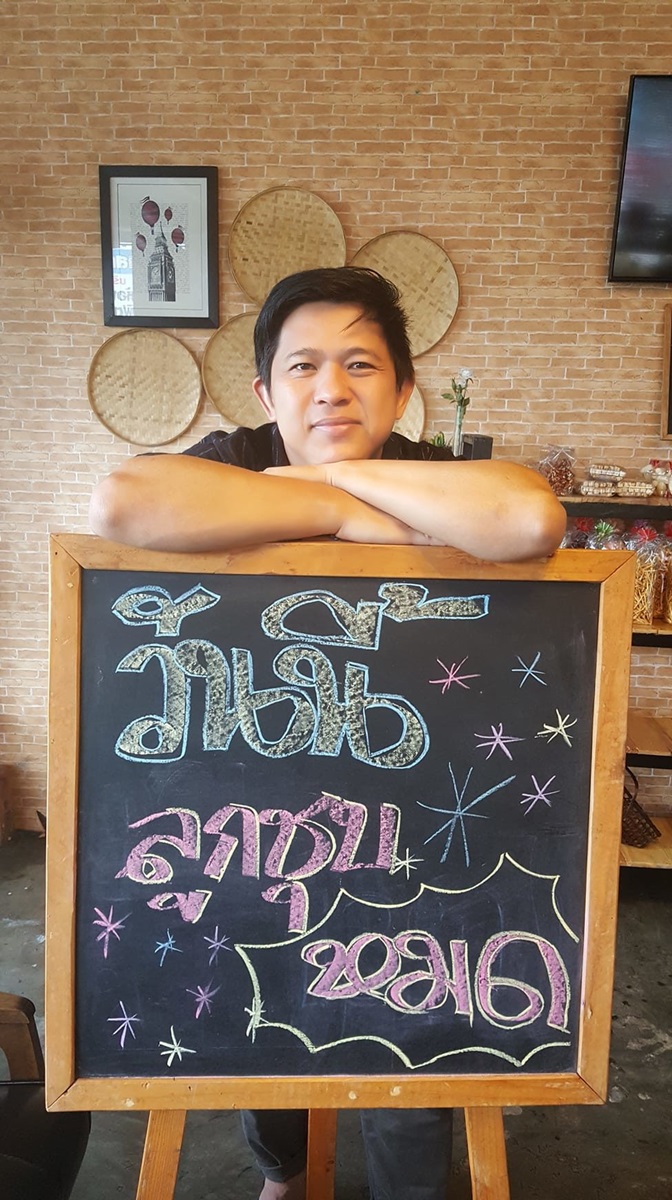 วันนี้
ลูกชุบ
หมด